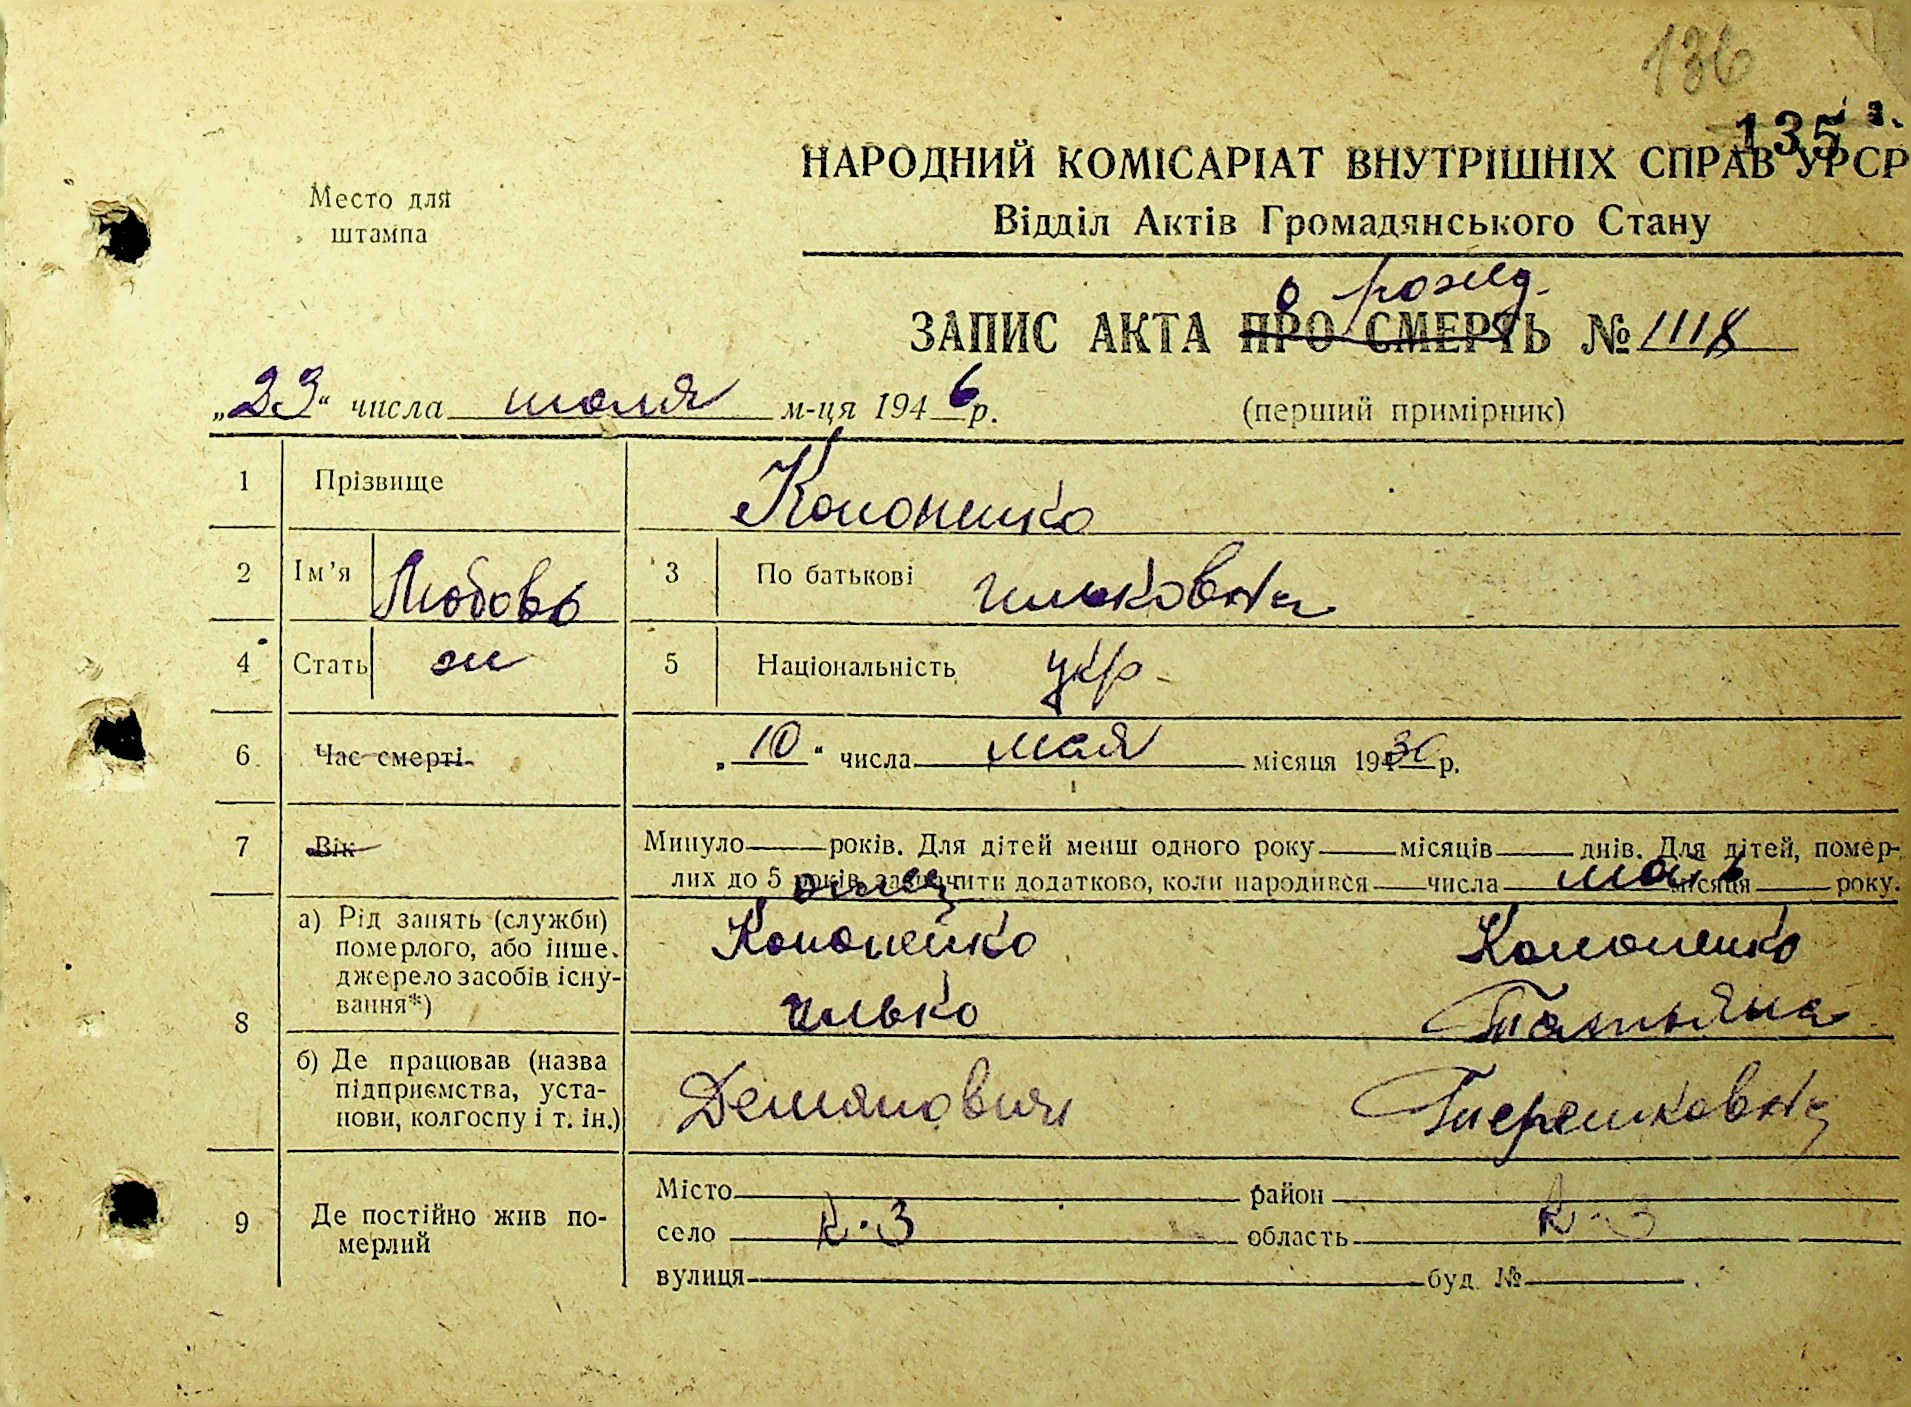 136
135
Место для
штампа
НАРОДНИЙ КОМІСАРІАТ ВНУТРІШНІХ СПРАВ УРСР
Відділ Актів Громадянського Стану
о рожд.
ЗАПИС АКТА ПРО СМЕРТЬ № 1118
„23“ числа июля м-ця 1946 р. (перший примірник)
1 Прізвище Кононенко
2 Ім’я Любовь 3 По батькові Ильковна
4 Стать ж 5 Національність укр.
6 Час смерті „10“ числа мая місяця 1930 р.
7 Вік Минуло років. Для дітей менш одного року місяців днів. Для дітей, помер-
лих до 5 років, зазначити додатково, коли народився числа місяця року.
отец мать
8 а) Рід занять (служби) померлого, або інше джерело засобів існу-вання*) Кононенко Кононенко
Илько Татьяна
б) Де працював (назва підприємства, уста-нови, колгоспу і т. ін.) Демянович Терешковна
9 Де постійно жив по-мерлий
Місто район
село К-З область К-З
вулиця буд. №